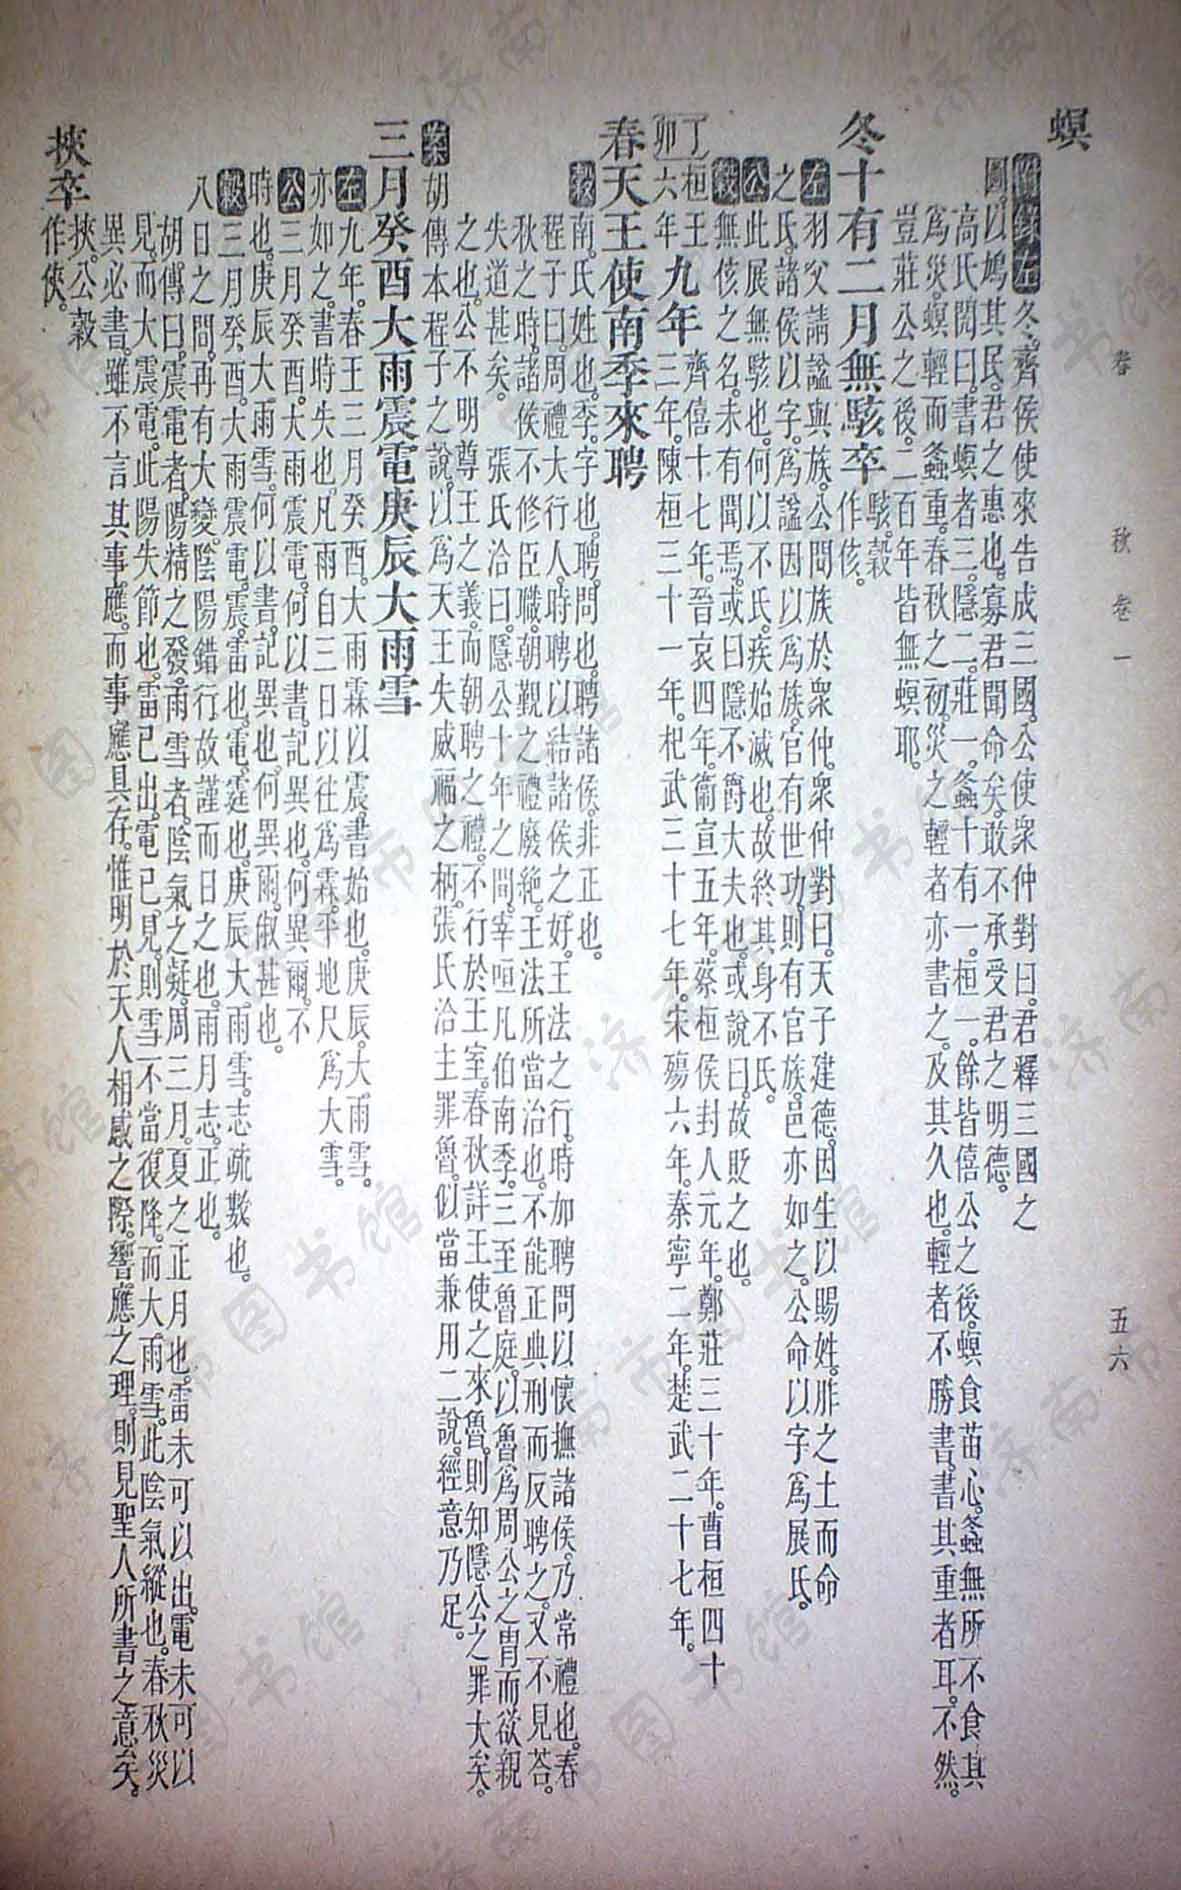 春　秋　卷一　五六
螟
附錄左冬。齊侯使來告成三國。公使衆仲對曰。君釋三國之
圖。以鳩其民。君之惠也。寡君聞命矣。敢不承受君之明德。
高氏閌曰。書螟者三。隱二。莊一。螽十有一。桓一。餘皆僖公之後。螟食苗心。螽無所不食。其
爲災。螟輕而螽重。春秋之初。災之輕者亦書之。及其久也。輕者不勝書。書其重者耳。不然。
豈莊公之後。二百年皆無螟耶。
冬十有二月無駭卒 駭。穀作侅。
左羽父請謚與族。公問族於衆仲。衆仲對曰。天子建德。因生以賜姓。胙之土而命
之氏。諸侯以字。爲謚因以爲族。官有世功。則有官族。邑亦如之。公命以字爲展氏。
公此展無駭也。何以不氏。疾始滅也。故終其身不氏。
穀無侅之名。未有聞焉。或曰隱不爵大夫也。或說曰。故貶之也。
丁卯 桓王六年 九年 齊僖十七年。晉哀四年。衞宣五年。蔡桓侯封人元年。鄭莊三十年。曹桓四十
三年。陳桓三十一年。杞武三十七年。宋殤六年。秦寧二年。楚武二十七年。
春天王使南季來聘
穀南。氏姓也。季。字也。聘。問也。聘諸侯。非正也。
程子曰。周禮大行人。時聘以結諸侯之好。王法之行。時加聘問以懷撫諸侯。乃常禮也。春
秋之時。諸侯不修臣職。朝覲之禮廢絶。王法所當治也。不能正典刑而反聘之。又不見荅。
失道甚矣。　張氏洽曰。隱公十年之間。宰咺凡伯南季。三至魯庭。以魯爲周公之冑而欲親
之也。公不明尊王之義。而朝聘之禮。不行於王室。春秋詳王使之來魯。則知隱公之罪大矣。
案胡傳本程子之說。以爲天王失威福之柄。張氏洽主罪魯。似當兼用二說。經意乃足。
三月癸酉大雨震電庚辰大雨雪
左九年。春王三月癸酉。大雨霖以震。書始也。庚辰。大雨雪。
亦如之。書時失也。凡雨自三日以往爲霖。平地尺爲大雪。
公三月癸酉。大雨震電。何以書。記異也。何異爾。不
時也。庚辰大雨雪。何以書。記異也。何異爾。俶甚也。
穀三月癸酉。大雨震電。震。雷也。電。霆也。庚辰大雨雪。志疏數也。
八日之間。再有大變。陰陽錯行。故謹而日之也。雨月志。正也。
胡傳曰。震電者。陽精之發。雨雪者。陰氣之凝。周三月。夏之正月也。雷未可以出。電未可以
見。而大震電。此陽失節也。雷已出。電已見。則雪不當復降。而大雨雪。此陰氣縱也。春秋災
異必書。雖不言其事應。而事應具存。惟明於天人相感之際。響應之理。則見聖人所書之意矣。
挾卒 挾。公穀作俠。